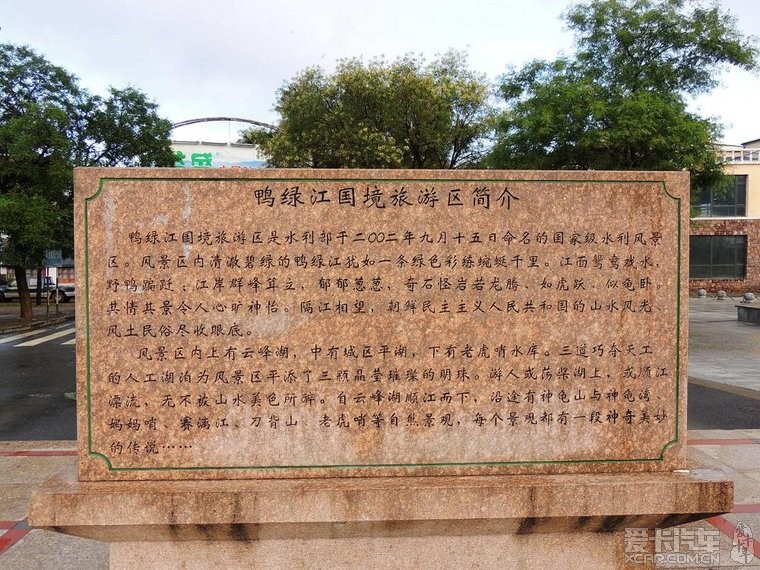 鸭绿江国境旅游区简介
鸭绿江国境旅游区是水利部于二〇〇二年九月十五日命名的国家级水利风景
区。风景区内清澈碧绿的鸭绿江犹如一条绿色彩练蜿蜒千里。江面鸳鸯戏水，
野鸭蹁跹；江岸群峰耸立，郁郁葱葱，奇石怪岩若龙腾、如虎跃、似龟卧。
其情其景令人心旷神怡。隔江相望，朝鲜民主主义人民共和国的山水风光、
风土民俗尽收眼底。
风景区内上有云峰湖，中有城区平湖，下有老虎哨水库。三道巧夺天工
的人工湖泊为风景区平添了三颗晶莹璀璨的明珠。游人或荡桨湖上，或顺江
漂流，无不被山水美色所醉。自云峰湖顺江而下，沿途有神龟山与神龟湾、
妈妈哨、赛漓江、刀背山、老虎哨等自然景观，每个景观都有一段神奇美妙
的传说……
爱卡汽车
XCAR.COM.CN